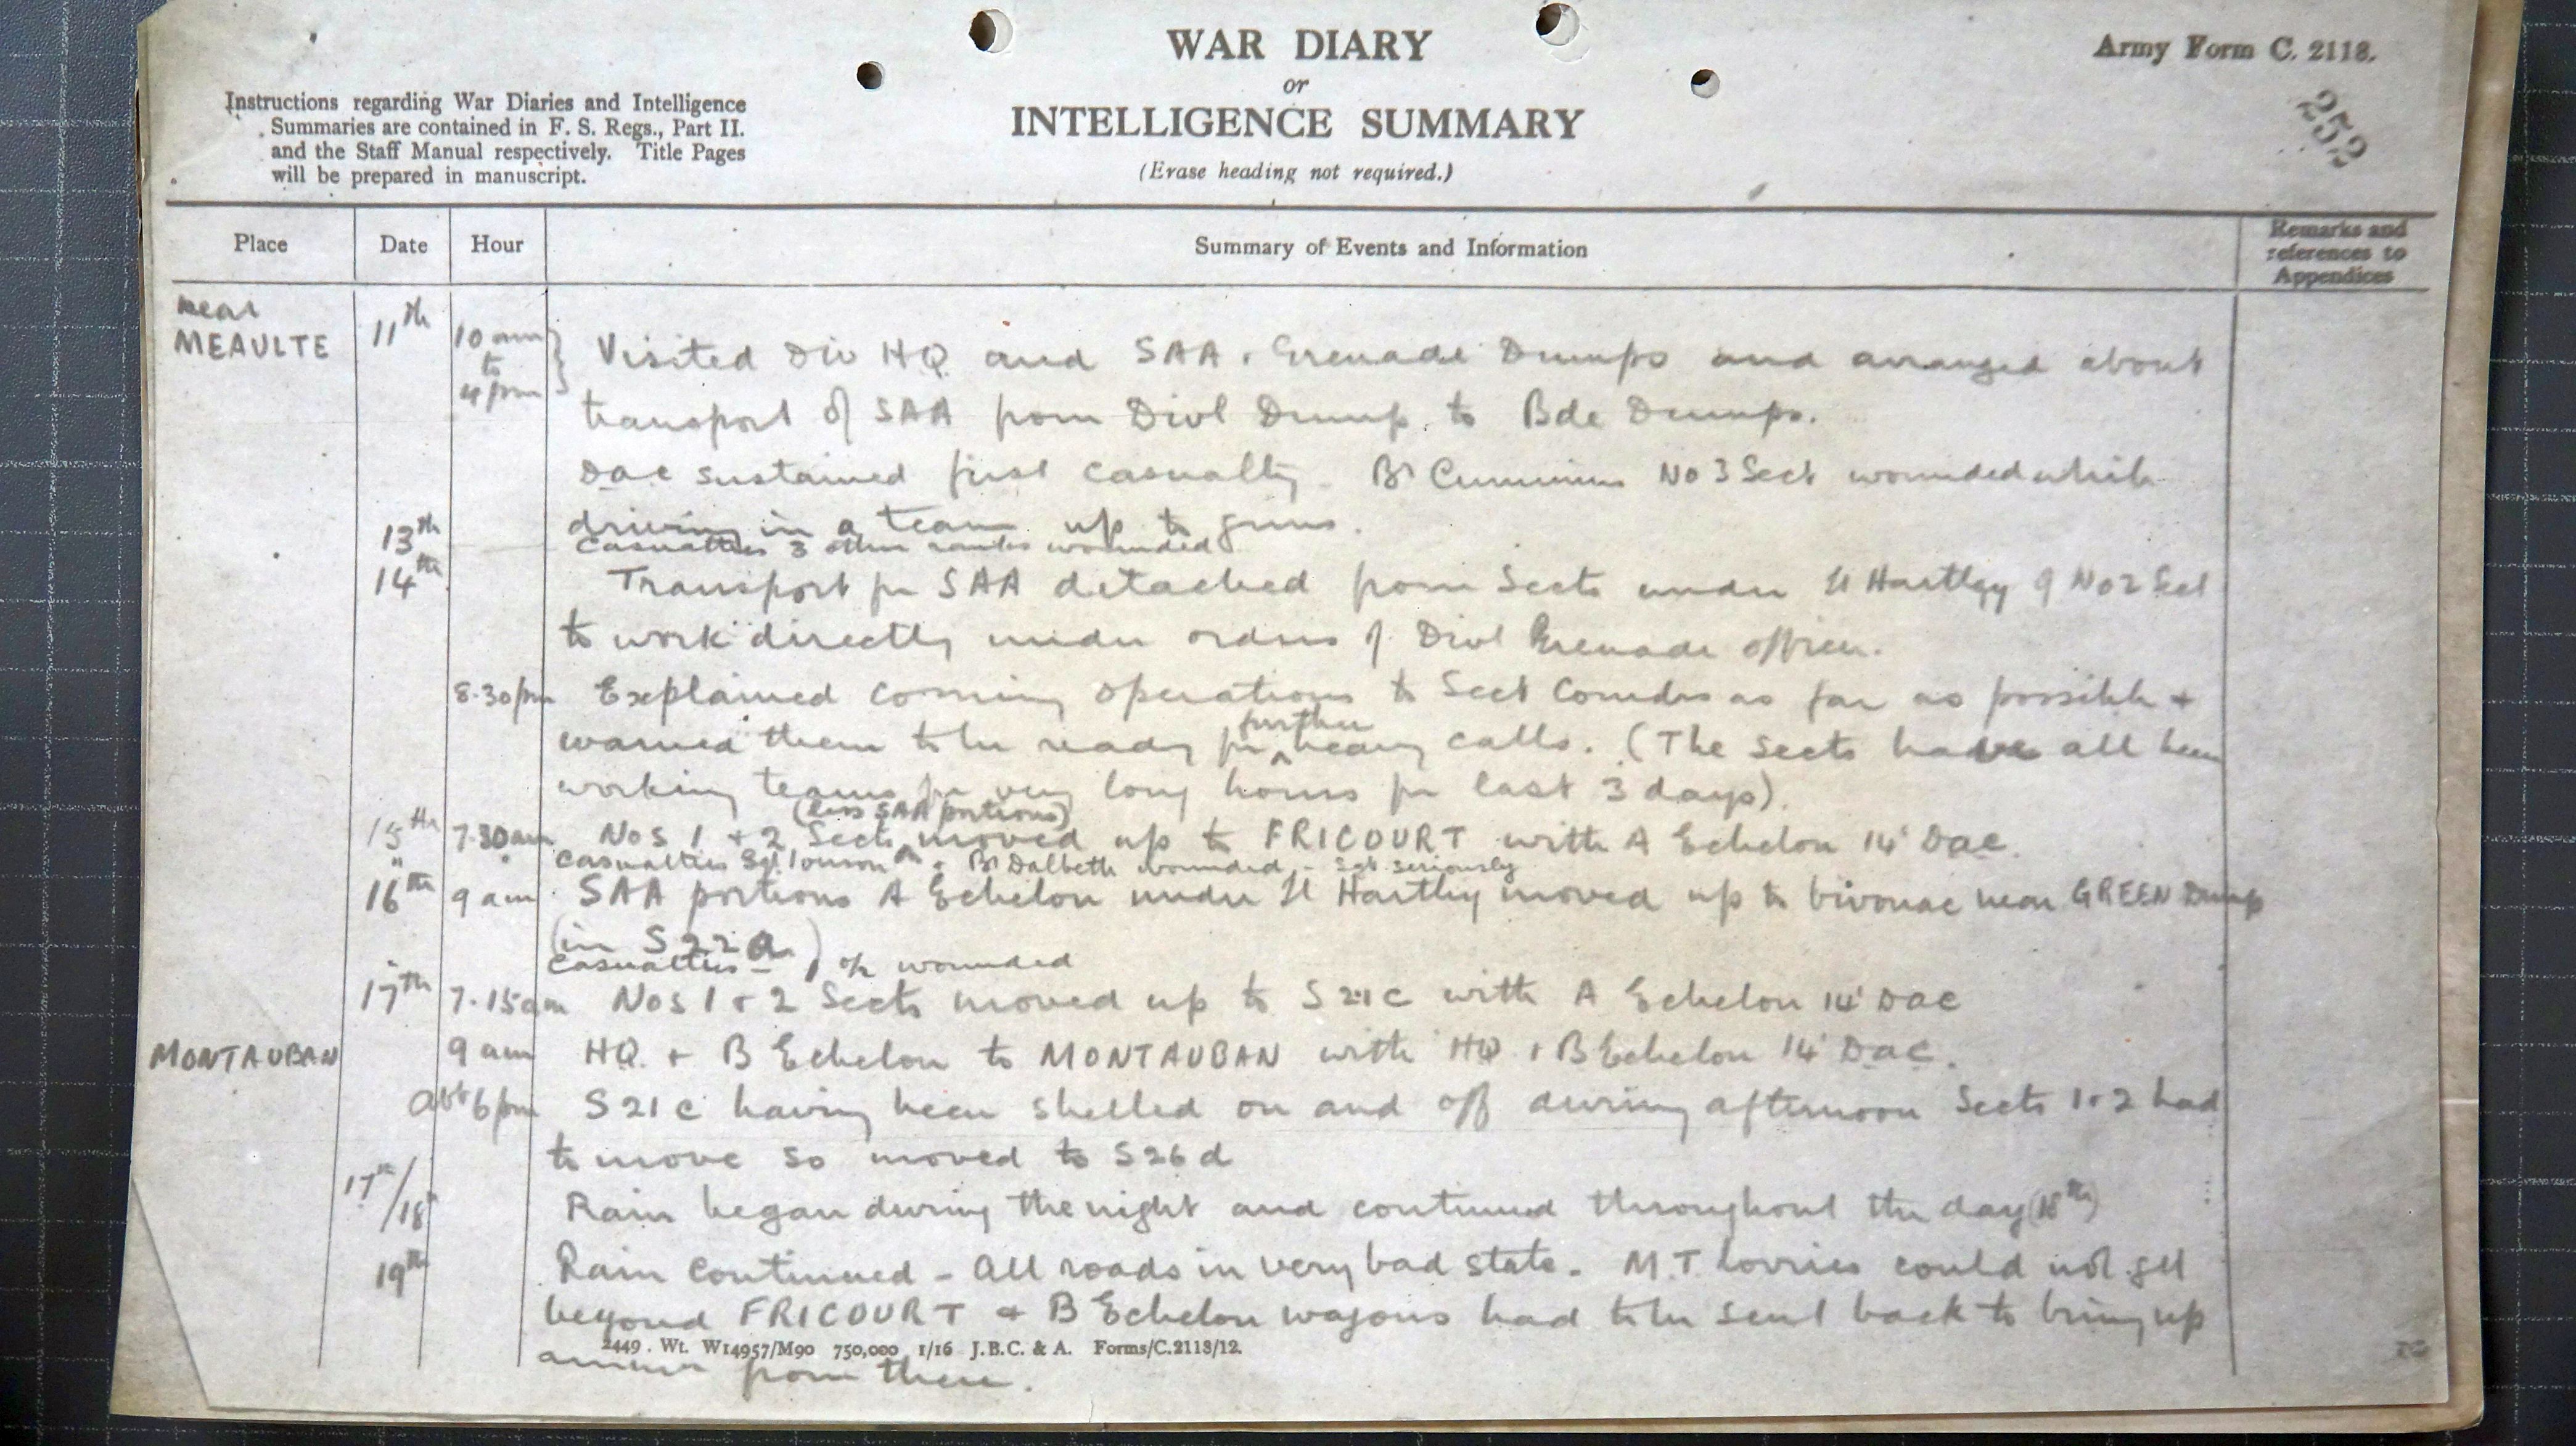 WAR DIARY
or
INTELLIGENCE SUMMARY
(Erase heading not required.)
Army Form C. 2118.
252
Instructions regarding War Diaries and Intelligence
Summaries are contained in F. S. Regs., Part II.
and the Staff Manual respectively. Title Pages
will be prepared in manuscript.
Place Date Hour Summary of Events and Information Remarks and references to Appendices
near
MEAULTE 11th 10 am to 4 pm } Visited Div HQ and SAA + Grenade Dumps and arranged about
transport of SAA from Divl Dump to Bde Dumps.
DAC sustained first casualty. Br Cummins No 3 Sect wounded while
driving in a team up to guns.
13th Casualties 3 other ranks wounded
14th Transport for SAA detached from Sects under Lt Hartley of No 2 Sect
to work directly under orders of Divl Grenade officer.
8.30 pm Explained coming operations to Sect Comdrs as far as possible +
warned them to be ready for further heavy calls. (The Sects have all been
working teams for very long hours for last 3 days).
15th 7.30 am Nos 1 + 2 Sects (less SAA portions) moved up to FRICOURT with A Echelon 14 DAC.
" Casualties Sgt + Br Dalbeth wounded - Sgt seriously
16th 9 am SAA portions A Echelon under Lt Hartley moved up to bivouac near GREEN Dump
(in S 22 a)
Casualties - 1 OR wounded
17th 7.15 am Nos 1 + 2 Sects moved up to S 21 c with A Echelon 14 DAC
MONTAUBAN 9 am HQ + B Echelon to MONTAUBAN with HQ + B Echelon 14 DAC.
Abt 6 pm S 21 c having been shelled on and off during afternoon Sects 1 + 2 had
to move so moved to S 26 d
17th/18 Rain began during the night and continued throughout the day (18th)
19th Rain continued - All roads in very bad state. M.T. lorries could not get
beyond FRICOURT + B Echelon wagons had to be sent back to bring up
ammn from there.
2449. Wt. W14957/M90 750,000 1/16 J.B.C. & A. Forms/C.2118/12.